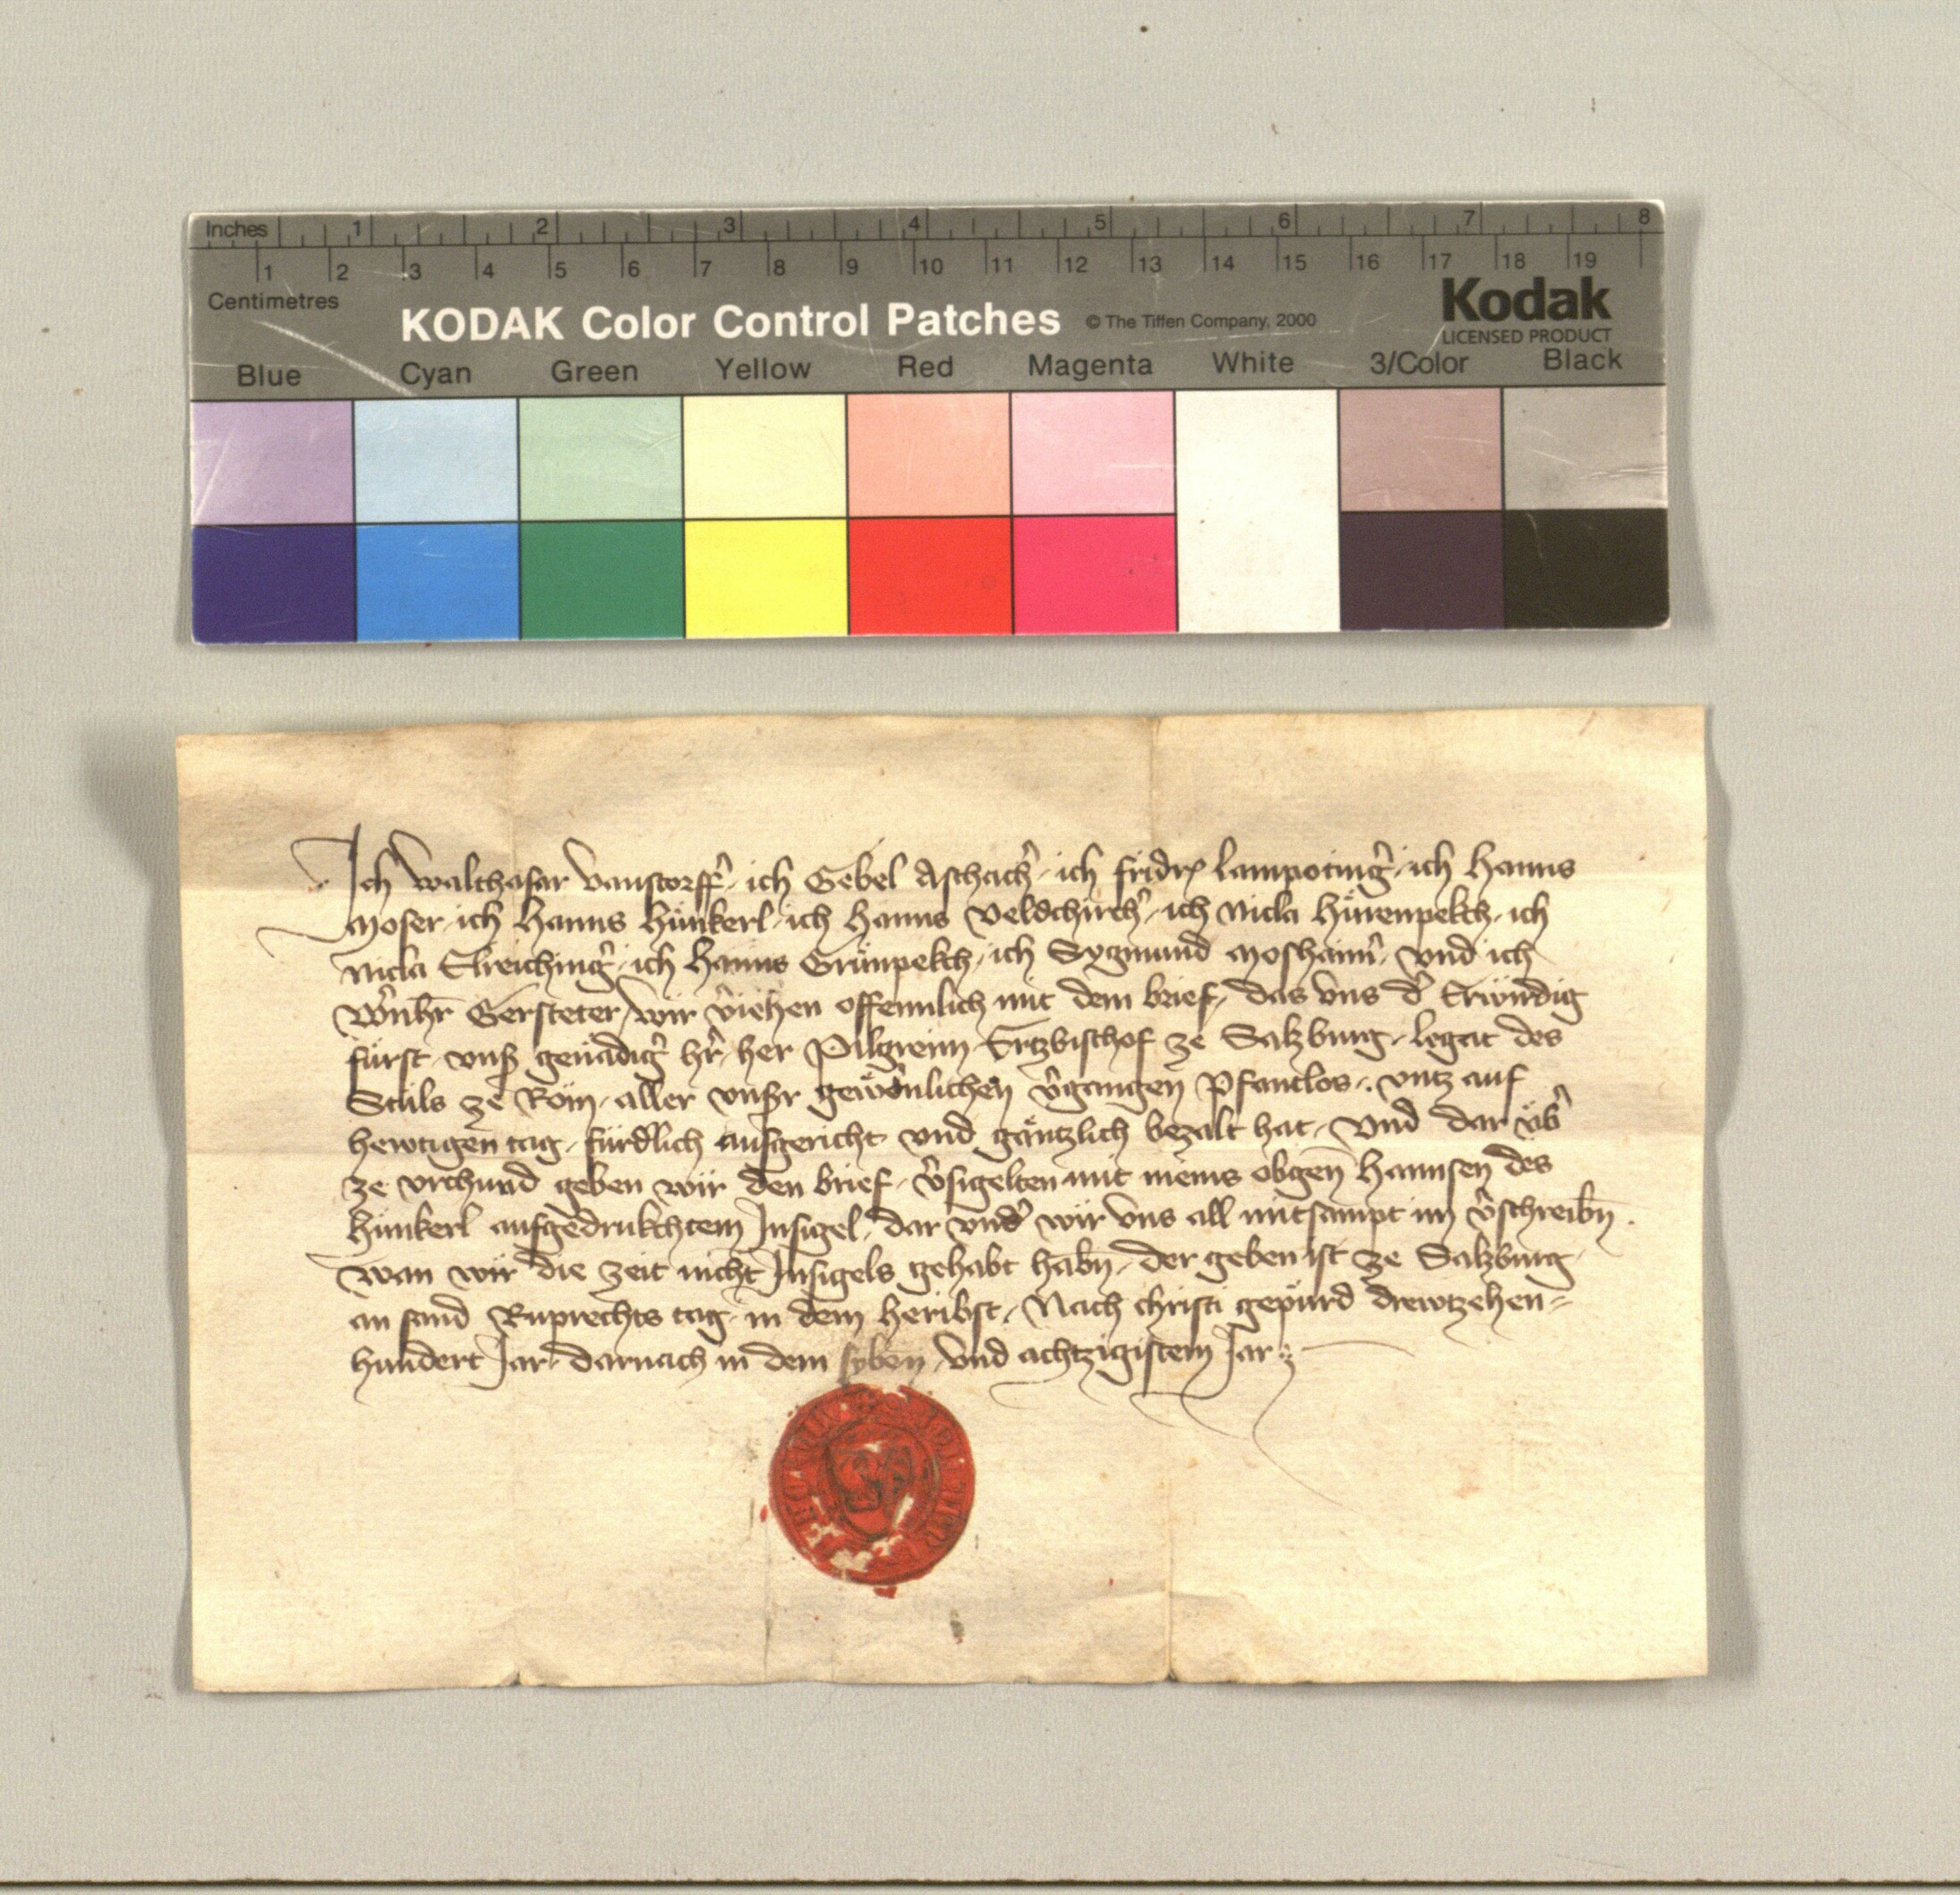 Inches 1 2 3 4 5 6 7 8
1 2 3 4 5 6 7 8 9 10 11 12 13 14 15 16 17 18 19
Centimetres
KODAK Color Control Patches © The Tiffen Company, 2000 Kodak
LICENSED PRODUCT
Blue Cyan Green Yellow Red Magenta White 3/Color Black
Ich Walthasar Vanstorff̉ · ich Gebel Aschach̉ · ich fridr̄ Lampoting̉ · ich Hanns
Moser · ich Hanns Hünkerl · ich Hanns Veldchirch̉ · ich Nicla Hürenpekch · ich
Nicla Elreiching̉ · ich Hanns Grünpekch · ich Sygmund Moshaim̉ · vnd ich
Gersteter / wir v̉iehen offennlich mit dem brief / das vns d̉ Erwirdig
fürst · vnß genädig̉ hr̉ · her Pilgreim Ertzbischof ze Salzburg · legat des
Stuls ze Rom · aller vnßr gewönlichen v̉gangen Pfantlos · vntz auf
hewtigen tag · fürdlich ausgericht vnd gäntzlich bezalt hat · Vnd dar üb̉
ze vrchund geben wir den brief · v̉sigelten mit meins obgen̄ Hannsen des
Hünkerl aufgedrukchtem Insigel · dar vnd̉ wir vns all mitsampt im v̉schreibn̄ ·
Wan wir die zeit nicht Insigels gehabt habn̄ · der geben ist ze Salzburg ·
an sand Ruprechts tag · in dem heribst · Nach christi gepürd drewtzehen=
hundert Jar · darnach in dem syben · vnd achtzigistem Jar